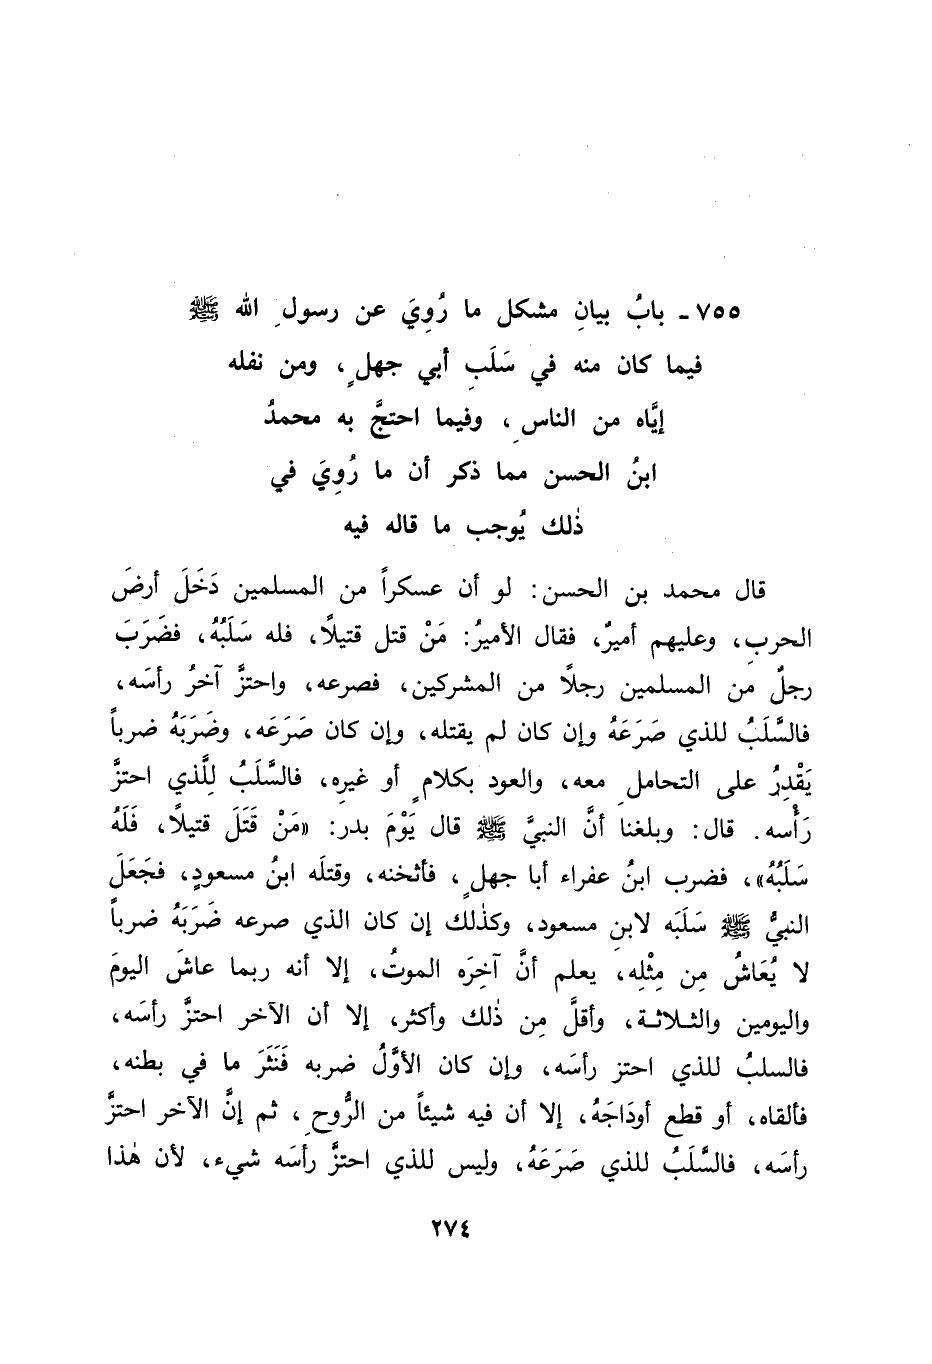 ٧٥٥ ـ بابُ بيانِ مشكل ما رُوِيَ عن رسولِ الله ﷺ
فيما كان منه في سَلَبِ أبي جهلٍ، ومن نفله
إيَّاه من الناسِ، وفيما احتجَّ به محمدُ
ابنُ الحسن مما ذكر أن ما رُوِيَ في
ذٰلك يُوجب ما قاله فيه
قال محمد بن الحسن: لو أن عسكراً من المسلمين دَخَلَ أرضَ
الحربِ، وعليهم أميرٌ، فقال الأميرُ: مَنْ قتل قتيلاً، فله سَلَبُهُ، فضَرَبَ
رجلٌ من المسلمين رجلاً من المشركين، فصرعه، واحتزَّ آخرُ رأسَه،
فالسَّلَبُ للذي صَرَعَهُ وإن كان لم يقتله، وإن كان صَرَعَه، وضَرَبَهُ ضرباً
يَقْدِرُ على التحاملِ معه، والعود بكلامٍ أو غيرِه، فالسَّلَبُ لِلَّذي احتزَّ
رَأْسه. قال: وبلغنا أنَّ النبيَّ ﷺ قال يَوْمَ بدر: «مَنْ قَتَلَ قتيلاً، فَلَهُ
سَلَبُهُ»، فضرب ابنُ عفراء أبا جهلٍ، فأثخنه، وقتلَه ابنُ مسعودٍ، فجَعَلَ
النبيُّ ﷺ سَلَبَه لابنِ مسعود، وكذٰلك إن كان الذي صرعه ضَرَبَهُ ضرباً
لا يُعَاشُ مِن مِثْلِه، يعلم أنَّ آخِرَه الموتُ، إلا أنه ربما عاشَ اليومَ
واليومين والثلاثة، وأقلَّ مِن ذٰلك وأكثر، إلا أن الآخر احتزَّ رأسَه،
فالسلبُ للذي احتز رأسَه، وإن كان الأوَّلُ ضربه فَنَثَرَ ما في بطنه،
فألقاه، أو قطع أودَاجَهُ، إلا أن فيه شيئاً من الرُّوحِ، ثم إنَّ الآخر احتزَّ
رأسَه، فالسَّلَبُ للذي صَرَعَهُ، وليس للذي احتزَّ رأسَه شيء، لأن هٰذا
٢٧٤